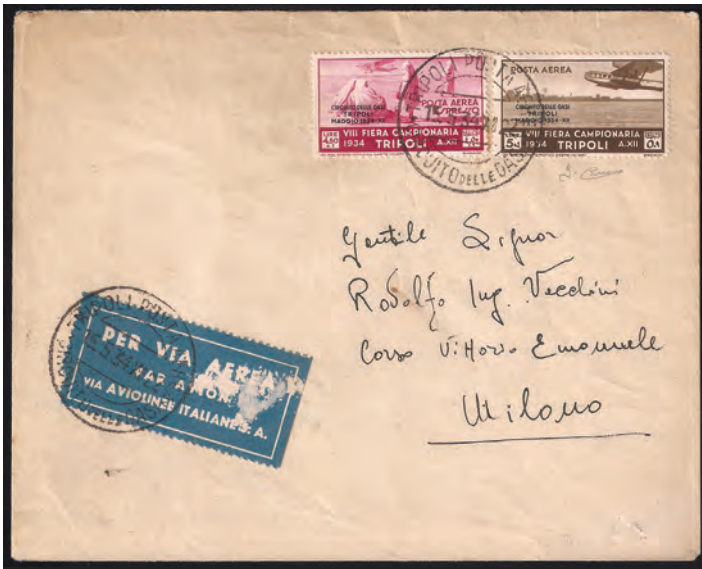 POSTA AEREA
ESPRESSO
CIRCUITO DELLE OASI
TRIPOLI
MAGGIO 1934-XII
VIII FIERA CAMPIONARIA
1934 TRIPOLI A.XII
POSTA AEREA
CIRCUITO DELLE OASI
TRIPOLI
MAGGIO 1934-XII
VIII FIERA CAMPIONARIA
1934 TRIPOLI A.XII
TRIPOLI POSTA
15.5.34
CUITO DELLE OASI
Gentile Signor
Rodolfo Ing. Vecchini
Corso Vittorio Emanuele
Milano
TRIPOLI POSTA
15.5.34
DELLE OASI
PER VIA AEREA
PAR AVION
VIA AVIOLINEE ITALIANE S. A.